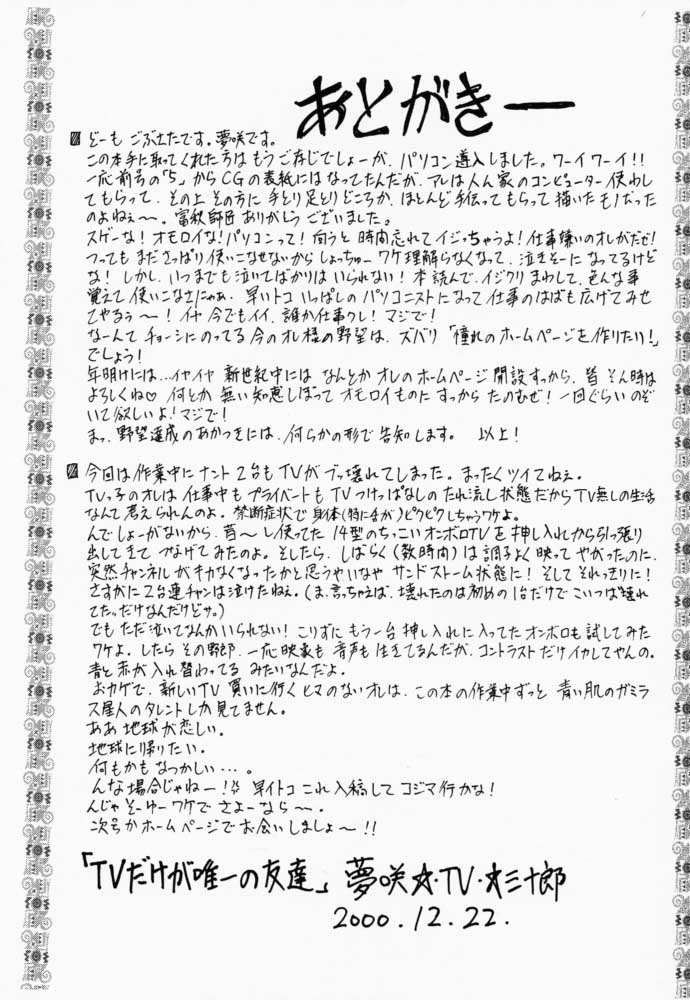 あとがきー
どーも ごぶさたです。夢咲です。
この本手に取ってくれた方は もうご存じでしょーが、パソコン導入しました。ワーイワーイ!!
一応前号の「5」からCGの表紙にはなってたんだが、アレは人ん家のコンピューター使わし
てもらって、その上その方に手とり足とりどころか、ほとんど手伝ってもらって描いたモノだった
のよねぇ〜。富秋師匠ありがとうございました。
スゲーな!オモロイな!パソコンって!向うと時間忘れてイジっちゃうよ!仕事嫌いのオレがだぜ!
つってもまださっぱり使いこなせないからしょっちゅーワケ理解らなくなって、泣きそーになってるけど
な!しかし、いつまでも泣いてばかりはいられない!本読んで、イジクリまわして、色んな事
覚えて使いこなさにゃぁ。早いトコいっぱしのパソコニストになって仕事のはばも広げてみせ
てやるぅ〜!イヤ今でもイイ、誰か仕事クレ!マジで!
なーんてチョーシにのってる今のオレ様の野望は、ズバリ「憧れのホームページを作りたい!」
でしょう!
年明けには…イヤイヤ 新世紀中には なんとかオレのホームページ開設すっから、皆そん時は
よろしくね♡ 何とか無い知恵しぼってオモロイものにすっからたのむぜ!一回ぐらいのぞ
いて欲しいよ!マジで!
まっ、野望達成のあかつきには、何らかの形で告知します。 以上!
今回は作業中にナント2台もTVがブッ壊れてしまった。まったくツイてねぇ。
TVっ子のオレは仕事中もプライベートもTVつけっぱなしのたれ流し状態だからTV無しの生活
なんて考えられんのよ。禁断症状で身体(特に舌が)ピクピクしちゃうワケよ。
んでしょーがないから、昔〜し使ってた14型のちっこいオンボロTVを押し入れから引っ張り
出してきてつなげてみたのよ。そしたら、しばらく(数時間)は調子よく映ってやがったのに、
突然チャンネルがキカなくなったかと思うやいなやサンドストーム状態に!そしてそれっきりに!
さすがに2台連チャンは泣けたねぇ。(ま、言っちゃえば、壊れたのは初めの1台だけでこいつは"壊れ
てた"だけなんだけどサ。)
でもただ泣いてなんかいられない!こりずにもう一台押し入れに入ってたオンボロも試してみた
ワケよ。したらその野郎、一応映像も音声も生きてるんだが、コントラストだけイカレてやんの。
青と赤が入れ替わってるみたいなんだよ。
おカゲで、新しいTV買いに行くヒマのないオレは、この本の作業中ずっと青い肌のガミラ
ス星人のタレントしか見てません。
ああ地球が恋しい。
地球に帰りたい。
何もかもなつかしい…。
んな場合じゃねー!早イトコこれ入稿してコジマ行かな!
んじゃそーゆーワケでさよーなら〜。
次号かホームページでお会いしましょ〜!!
「TVだけが唯一の友達」夢咲☆・TV・☆三十郎
2000.12.22.